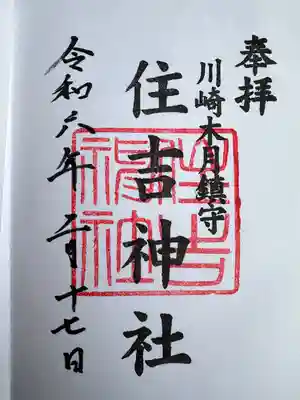 奉拝
川崎木月鎮守
住吉神社
令和六年二月十七日
住吉神社